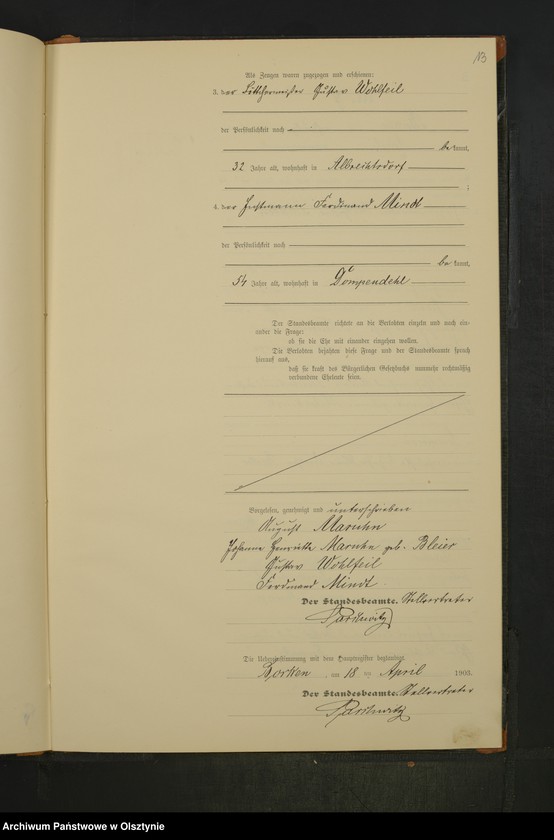 13
Als Zeugen waren zugezogen und erschienen:
3. der Böttchermeister Gustav Wohlfeil
der Persönlichkeit nach
be kannt,
32 Jahre alt, wohnhaft in Albrechtsdorf
;
4. der Instmann Ferdinand Mindt
der Persönlichkeit nach
be kannt,
54 Jahre alt, wohnhaft in Dompendehl
Der Standesbeamte richtete an die Verlobten einzeln und nach ein-
ander die Frage:
ob sie die Ehe mit einander eingehen wollen.
Die Verlobten bejahten diese Frage und der Standesbeamte sprach
hierauf aus,
daß sie kraft des Bürgerlichen Gesetzbuchs nunmehr rechtmäßig
verbundene Eheleute seien.
Vorgelesen, genehmigt und unterschrieben
August Maruhn
Johanne Henriette Maruhn geb. Bleier
Gustav Wohlfeil
Ferdinand Mindt
Der Standesbeamte. Stellvertreter
Die Uebereinstimmung mit dem Hauptregister beglaubigt
Borken, am 18 ten April 1903.
Der Standesbeamte. Stellvertreter
Archiwum Państwowe w Olsztynie